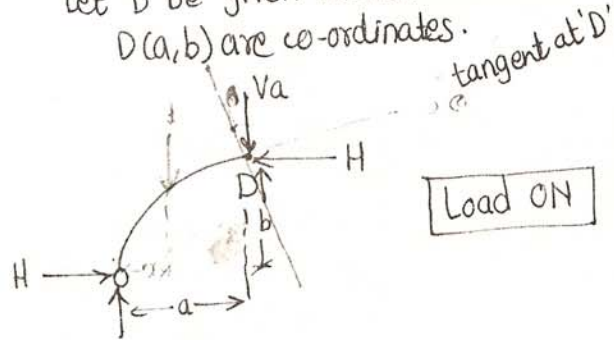 Let D be given
D(a,b) are co-ordinates.
tangent at 'D'
Va
H
D
b
Load ON
H
x
a